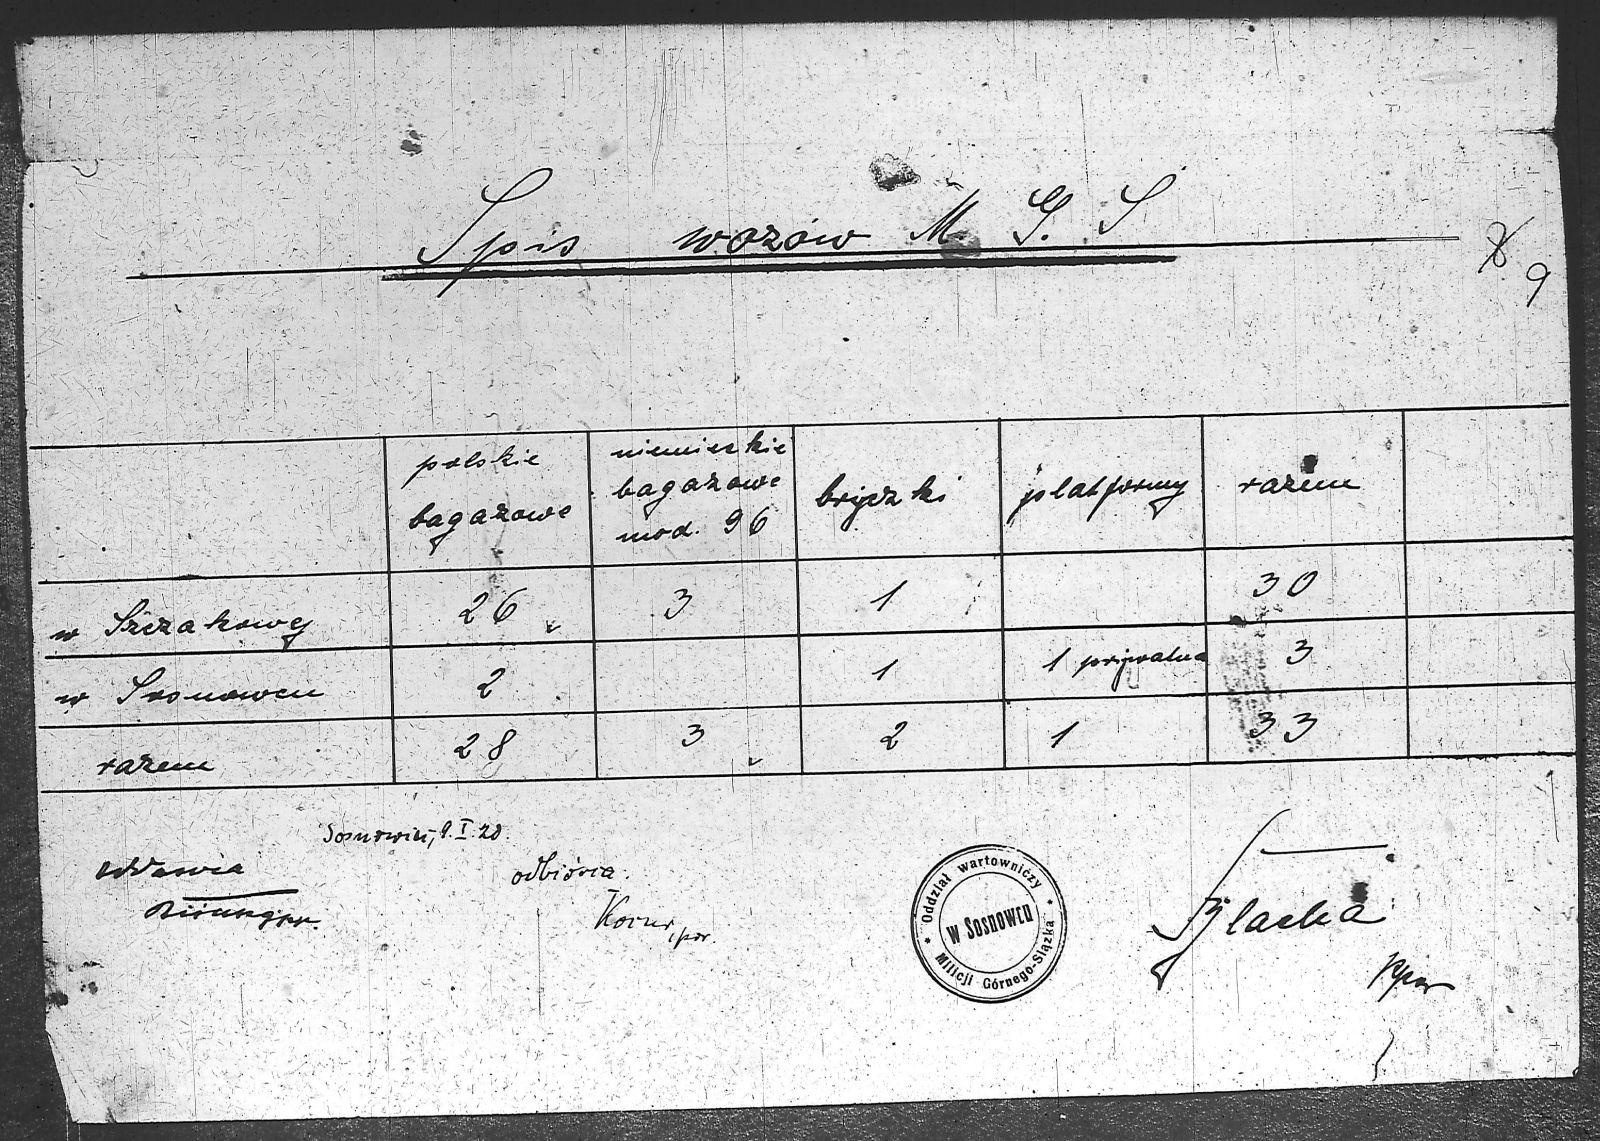 Spis wozów M. G. S
9
polskie bagażowe
niemieckie bagażowe mod. 96
bryczki
platformy
razem
w Szczakowej 26 3 1 30
w Sosnowcu 2 1 1 prywatna 3
razem 28 3 2 1 33
Sosnowiec, 9.I.20.
oddawca
odbiorca.
por.
Oddział wartowniczy
w Sosnowcu
Milicji Górnego-Śląska